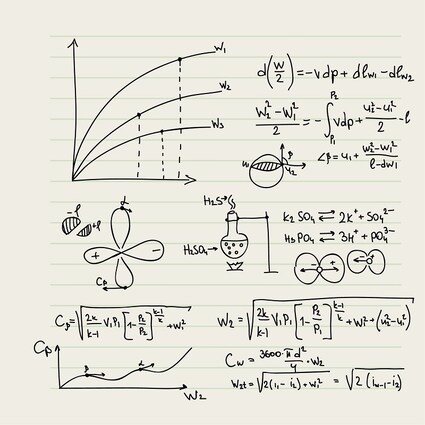 W₁
W₂
W₃
d(W/2) = -vdp + dlw₁ - dlw₂
(W₂² - W₁²)/2 = -∫P₁^P₂ vdp + (u₂² - u₁²)/2 - l
∠β = u₁ + (W₂² - W₁²)/(l - dw₁)
u₁
β
u₂
-l
+l
α
+
-
Cp
H₂S
H₂SO₄
K₂SO₄ ⇌ 2K⁺ + SO₄²⁻
H₃PO₄ ⇌ 3H⁺ + PO₄³⁻
- +
- +
Cp = √(2k/(k-1) V₁P₁ [1 - P₂/P₁]^((k-1)/k) + W₁²
W₂ = √(2k/(k-1) V₁P₁ [1 - P₂/P₁]^((k-1)/k) + W₁² + (u₂² - u₁²)
Cp
β
α
W₂
Cw = (3600·π d²)/4 · W₂
W₂t = √(2(i₁ - i₂) + W₁²) = √(2(iw-1 - i₂)